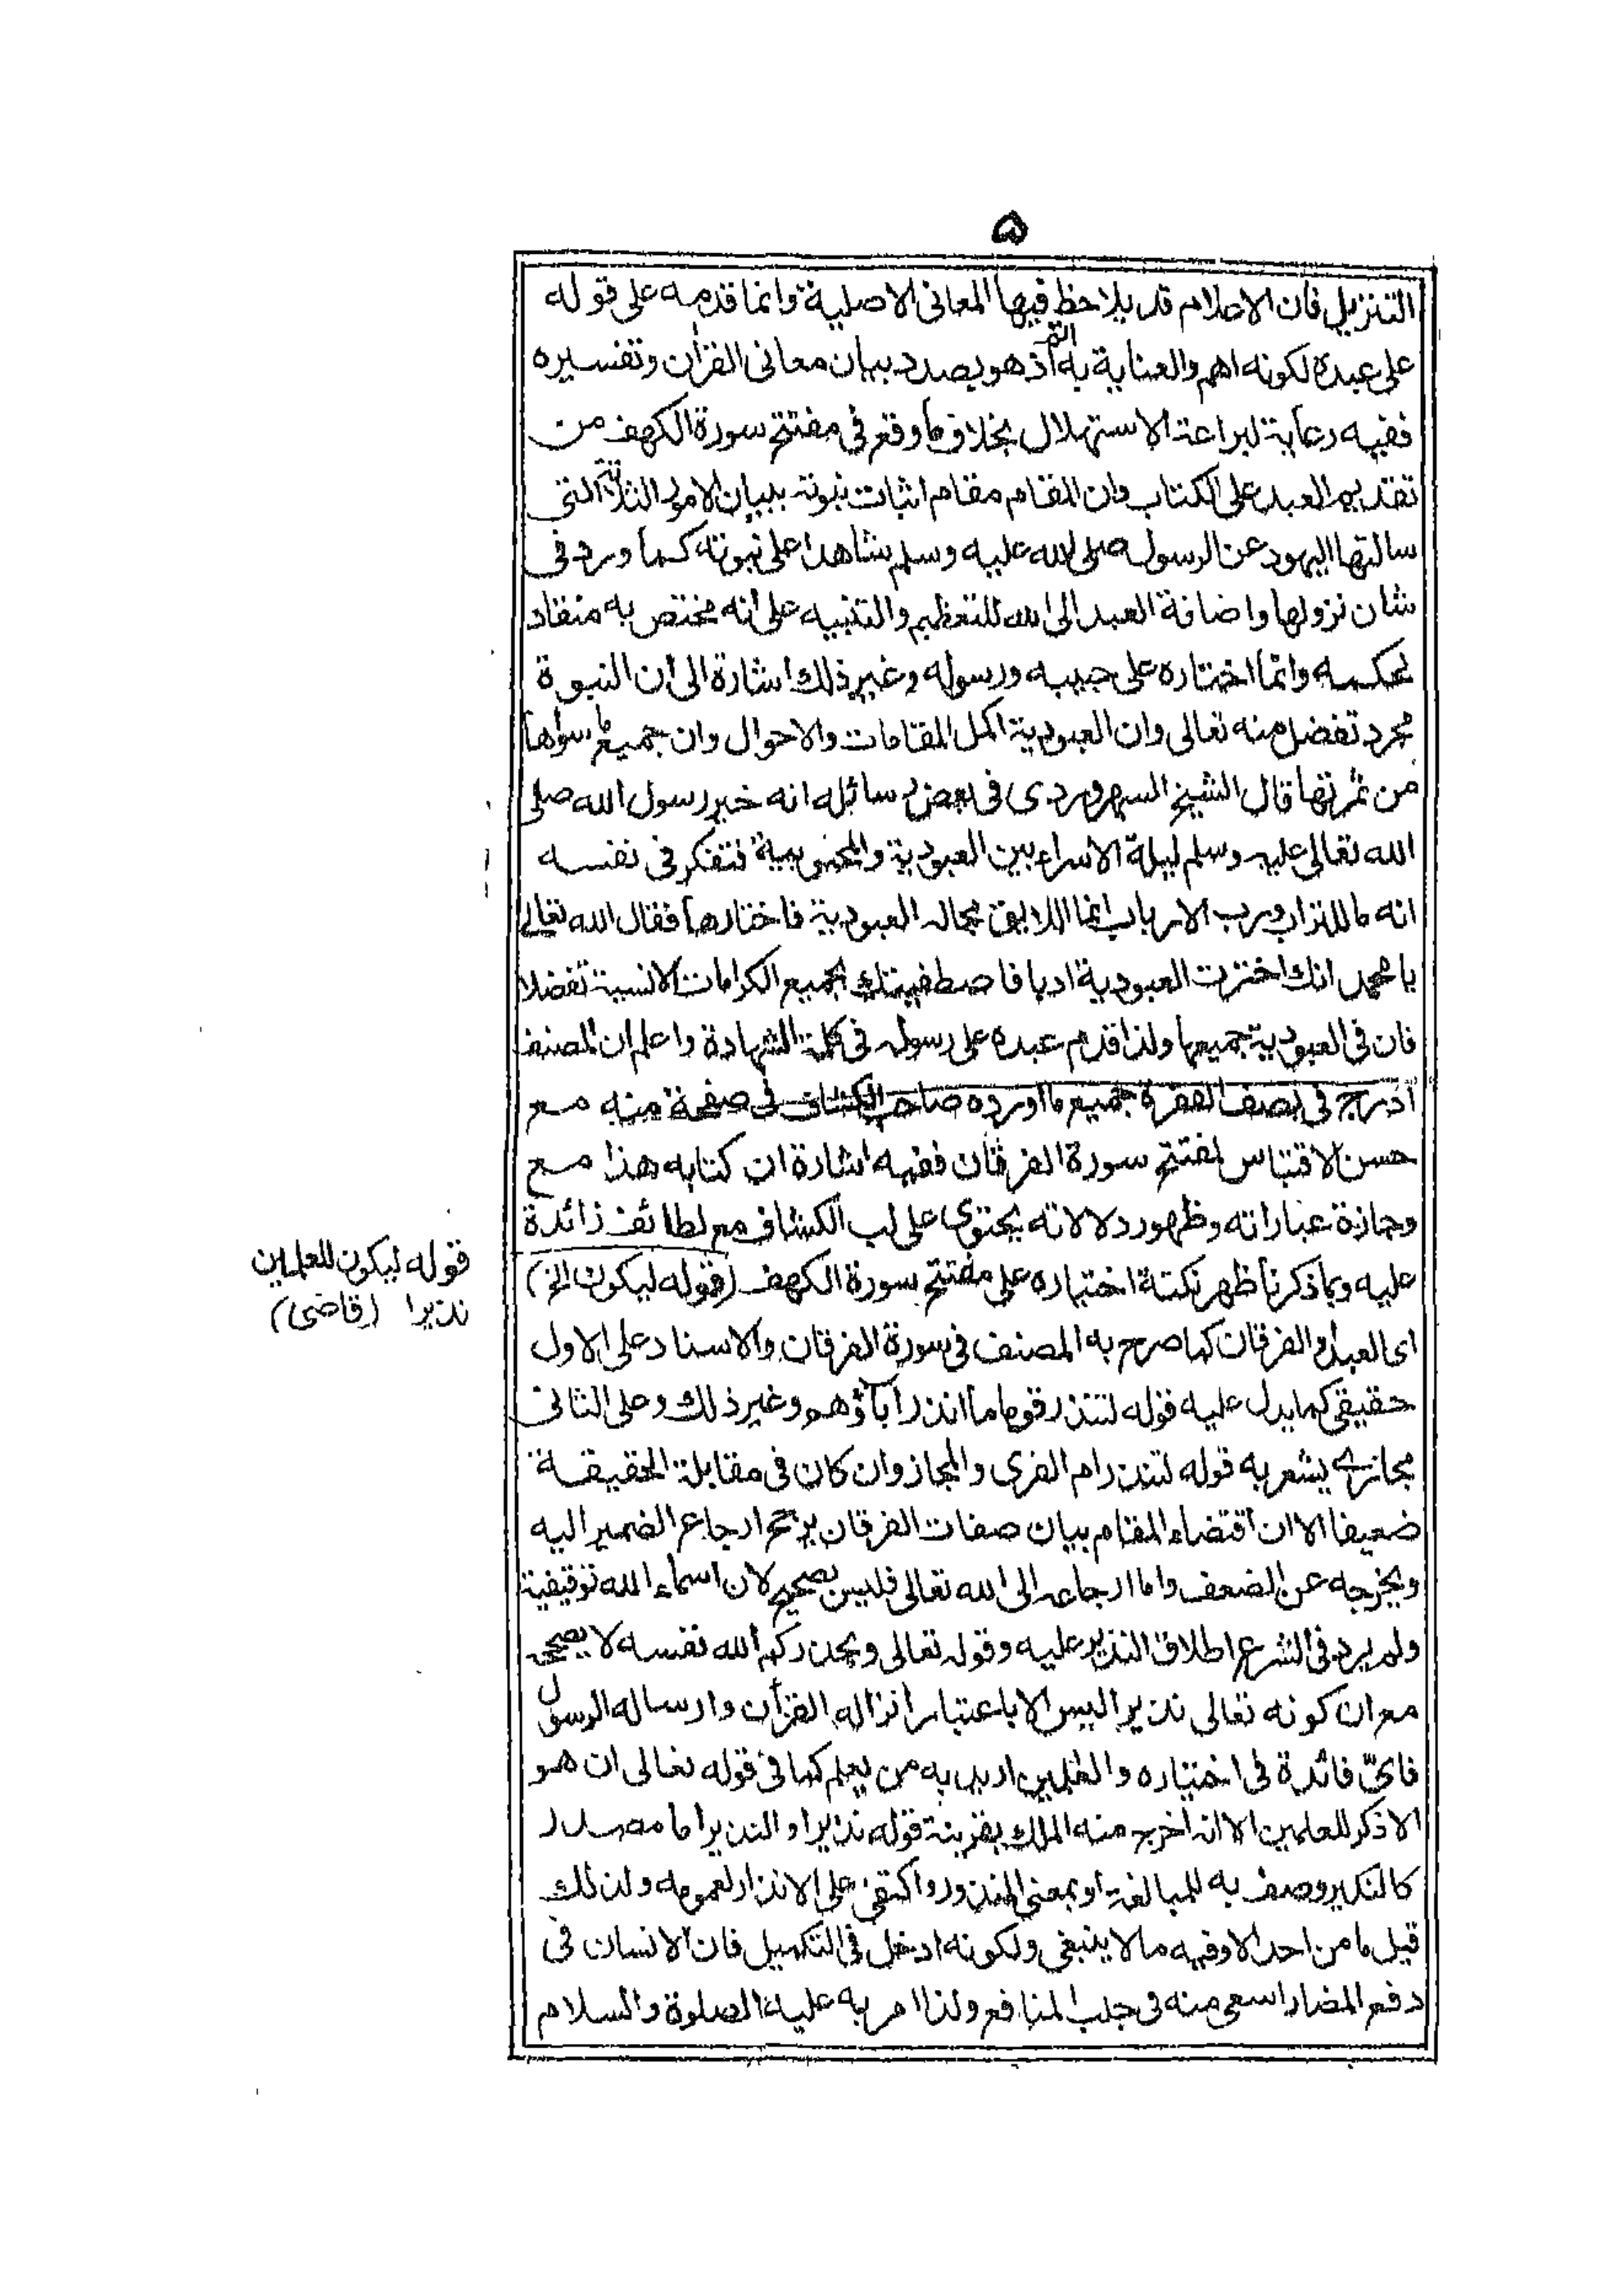 ۵
التنزيل فان الاعلام قد يلاحظ فيها المعانى الاصلية وانما قدمه على قوله
على عبده لكونه اهم والعناية به اتم اذ هو بصدد بيان معانى القرآن وتفسيره
ففيه رعاية لبراعة الاستهلال بخلاف ما وقع فى مفتتح سورة الكهف من
تقديم العبد على الكتاب فان المقام مقام اثبات نبوته ببيان الامور الثلاثة التى
سالتها اليهود عن الرسول صلى الله عليه وسلم شاهدا على نبوته كما ورد فى
شان نزولها واضافة العبد الى الله للتعظيم والتنبيه على انه مختص به منقاد
لحكمه وانما اختاره على حبيبه ورسوله وغير ذلك اشارة الى ان النبوة
مجرد تفضل منه تعالى وان العبودية اكمل المقامات والاحوال وان جميع ما سواها
من ثمرتها قال الشيخ السهروردى فى بعض رسائله انه خير رسول الله صلى
الله تعالى عليه وسلم ليلة الاسراء بين العبودية والمحبوبية فتفكر فى نفسه
انه ما للتراب ورب الارباب انما اللايق بحاله العبودية فاختارها فقال الله تعالى
يا محمد انك اخترت العبودية ادبا فاصطفيتك بجميع الكرامات الانسية تفضلا
فان فى العبودية جميعها ولذا قدم عبده على رسوله فى كلمة الشهادة واعلم ان المصنف
ادرج فى نصف الفقرة جميع ما اورده صاحب الكشاف فى صفحة منه مع
حسن الاقتباس لمفتتح سورة الفرقان ففيه اشارة ان كتابه هذا مع
وجازة عباراته وظهور دلالاته يحتوى على لب الكشاف مع لطائف زائدة
عليه وبما ذكرنا ظهر نكتة اختياره على مفتتح سورة الكهف (قوله ليكون الخ)
اى العبد او الفرقان كما صرح به المصنف فى سورة الفرقان والاسناد على الاول
حقيقى كما يدل عليه قوله لتنذر قوما ما انذر آباؤهم وغير ذلك وعلى الثانى
مجازى يشعر به قوله لتنذر ام القرى والمجاز وان كان فى مقابلة الحقيقة
ضعيفا الا ان اقتضاء المقام بيان صفات الفرقان يرجح ارجاع الضمير اليه
ويخرجه عن الضعف واما ارجاعه الى الله تعالى فليس بصحيح لان اسماء الله توقيفية
ولم يرد فى الشرع اطلاق النذير عليه وقوله تعالى ويحذركم الله نفسه لا يصححه
مع ان كونه تعالى نذيرا ليس الا باعتبار انزاله القرآن وارساله الرسول
فاىّ فائدة فى اختياره والعلمين اريد به من يعلم كما فى قوله تعالى ان هو
الا ذكر للعلمين الا انه اخرج منه الملك بقرينة قوله نذيرا والنذير اما مصدر
كالنكير وصف به للمبالغة او بمعنى المنذر واكتفى على الانذار لعمومه ولذلك
قيل ما من احد الا وفيه ما لا ينبغى ولكونه ادخل فى التكميل فان الانسان فى
دفع المضار اسعى منه فى جلب المنافع ولذا امر به عليه الصلوة والسلام
قوله ليكون للعلمين
نذيرا (قاضى)